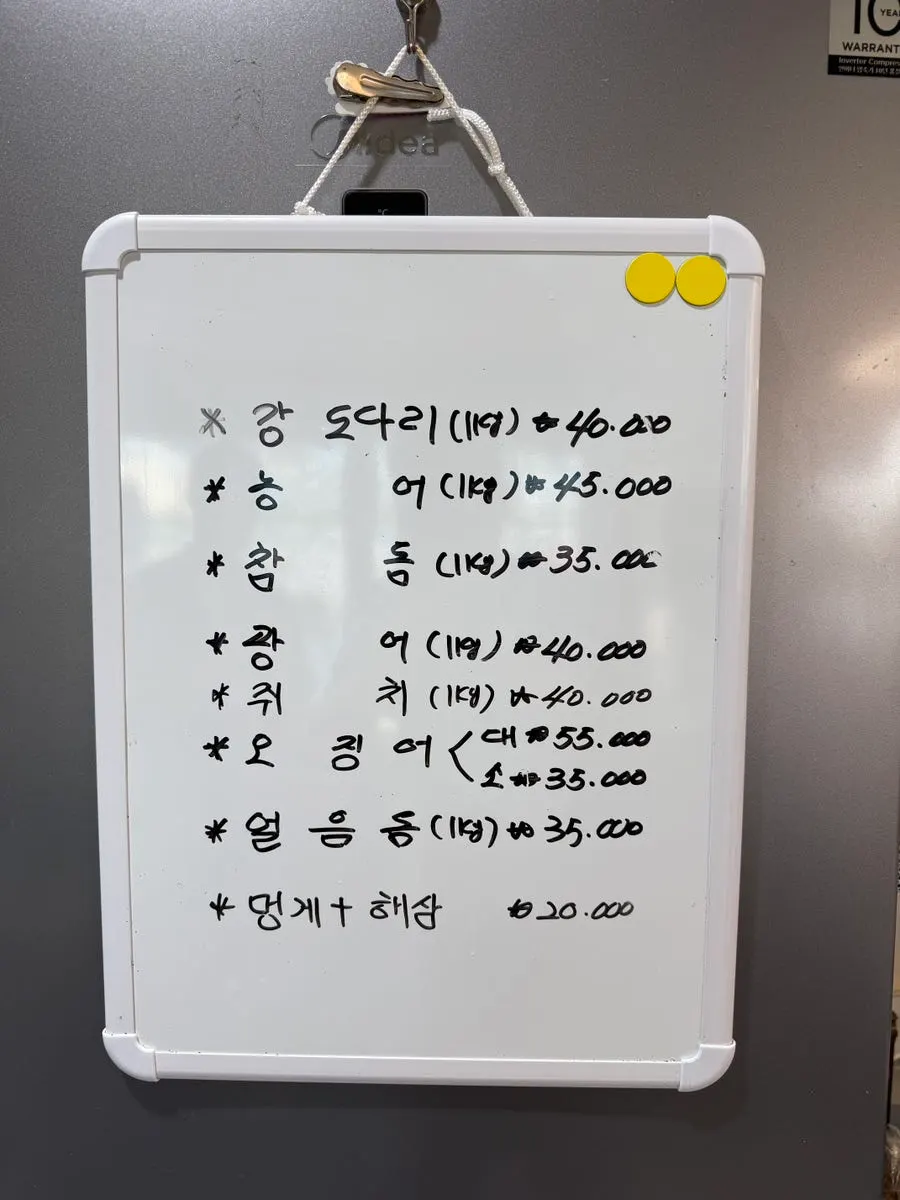 10
YEAR
WARRANT
Inverter Compres
Midea
℃
* 강 도다리 (1kg) ₩ 40.000
* 농 어 (1kg) ₩ 45.000
* 참 돔 (1kg) ₩ 35.000
* 광 어 (1kg) ₩ 40.000
* 쥐 치 (1kg) ₩ 40.000
* 오 징 어 < 대 ₩ 55.000
소 ₩ 35.000
* 얼 음 돔 (1kg) ₩ 35.000
* 멍게 + 해삼 ₩ 20.000